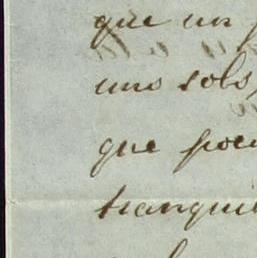 que un
uns sols
que
tranqui